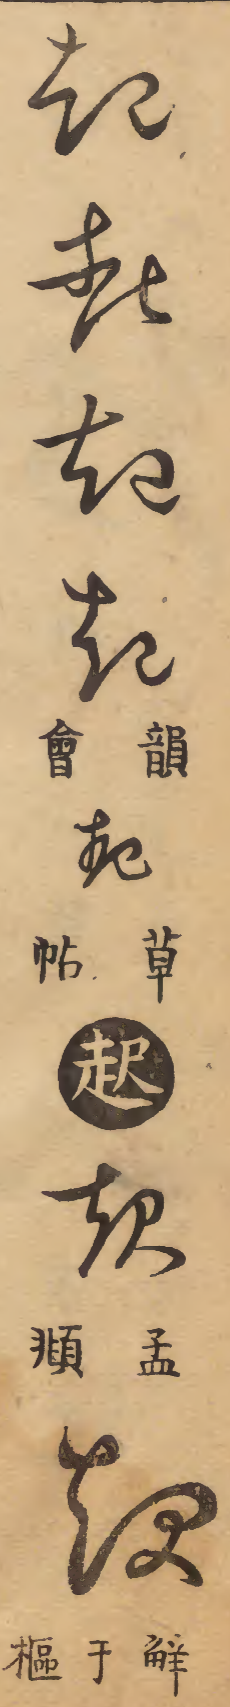 起
起
起
起
韻會
起
草帖
孟頫
鮮于樞